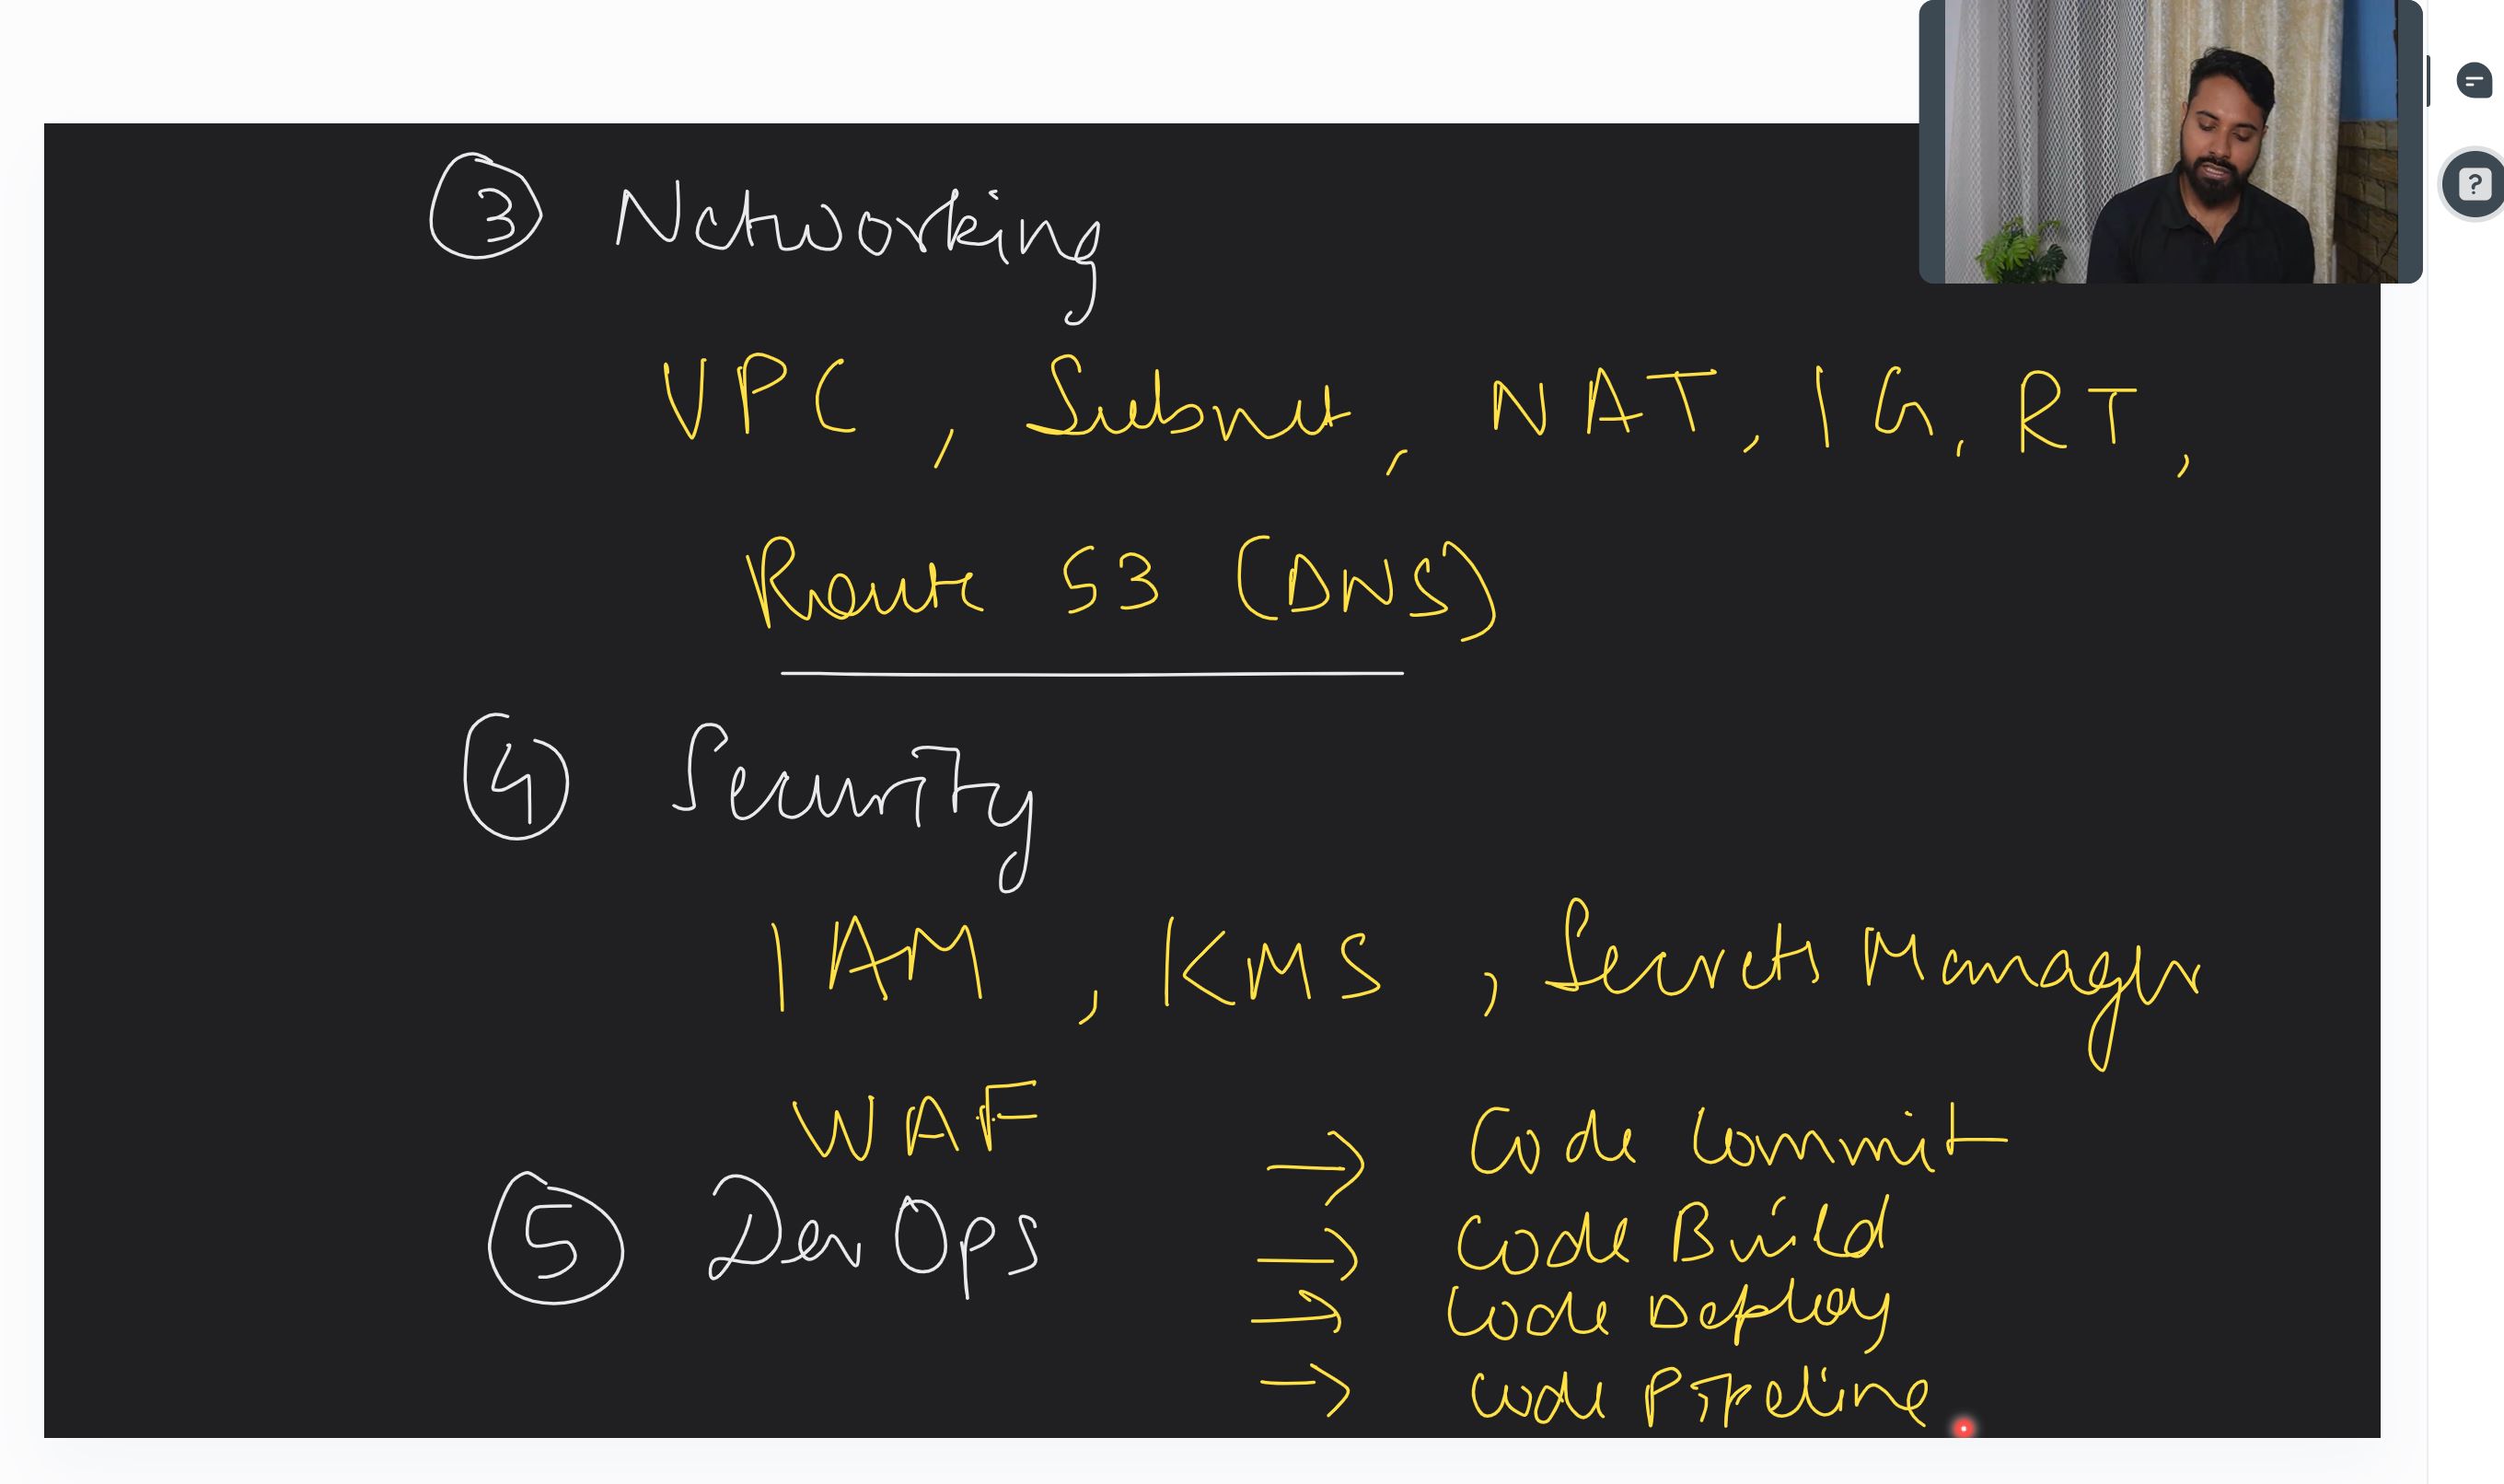 3 Networking
VPC, Subnet, NAT, IG, RT,
Route 53 (DNS)
4 Security
IAM, KMS, Secrets Manager
WAF
5 DevOps
→ Code Commit
→ Code Build
→ Code Deploy
→ Code Pipeline
?